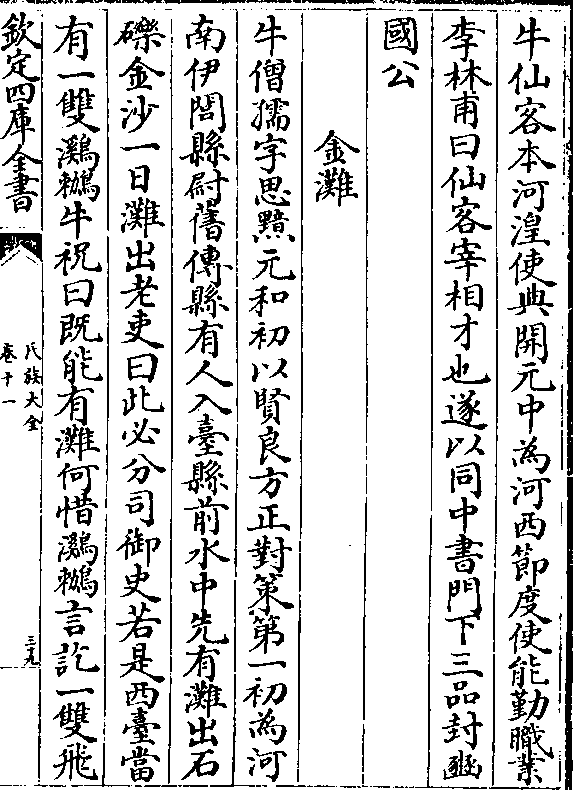 牛仙客本河湟使典開元中為河西節度使能勤職業
李林甫曰仙客宰相才也遂以同中書門下三品封豳
國公
金灘
牛僧孺字思黯元和初以賢良方正對策第一初為河
南伊闕縣尉舊傳縣有人入臺縣前水中先有灘出石
礫金沙一日灘出老吏曰此必分司御史若是西臺當
有一雙鸂鶒牛祝曰既能有灘何惜鸂鶒言訖一雙飛
欽定四庫全書
氏族大全
卷十一
三九